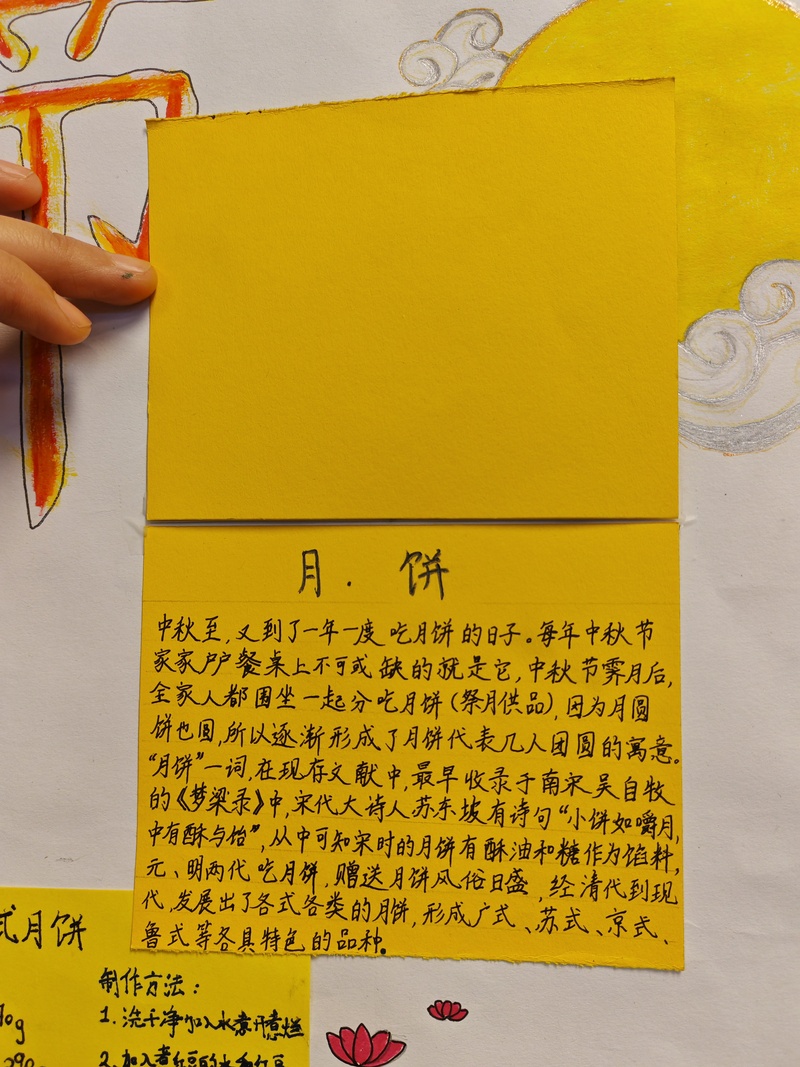 月.饼
中秋至,又到了一年一度吃月饼的日子。每年中秋节
家家户户餐桌上不可或缺的就是它,中秋节霁月后,
全家人都围坐一起分吃月饼(祭月供品),因为月圆
饼也圆,所以逐渐形成了月饼代表几人团圆的寓意。
“月饼”一词,在现存文献中,最早收录于南宋吴自牧
的《梦梁录》中,宋代大诗人苏东坡有诗句“小饼如嚼月,
中有酥与饴”,从中可知宋时的月饼有酥油和糖作为馅料,
元、明两代吃月饼,赠送月饼风俗日盛,经清代到现
代,发展出了各式各类的月饼,形成广式、苏式、京式、
鲁式等各具特色的品种.
式月饼
制作方法:
1.洗干净加入水煮开煮烂
10g
290
2.加入煮红豆的水和红豆